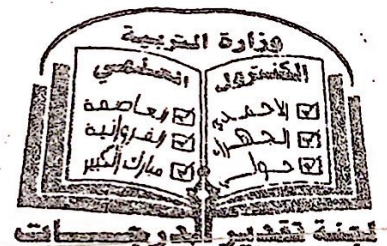 وزارة التربية
الكنترول
التعليمي
الاحمدي
الجهراء
حولي
العاصمة
الفروانية
مبارك الكبير
لجنة تقدير الدرجات